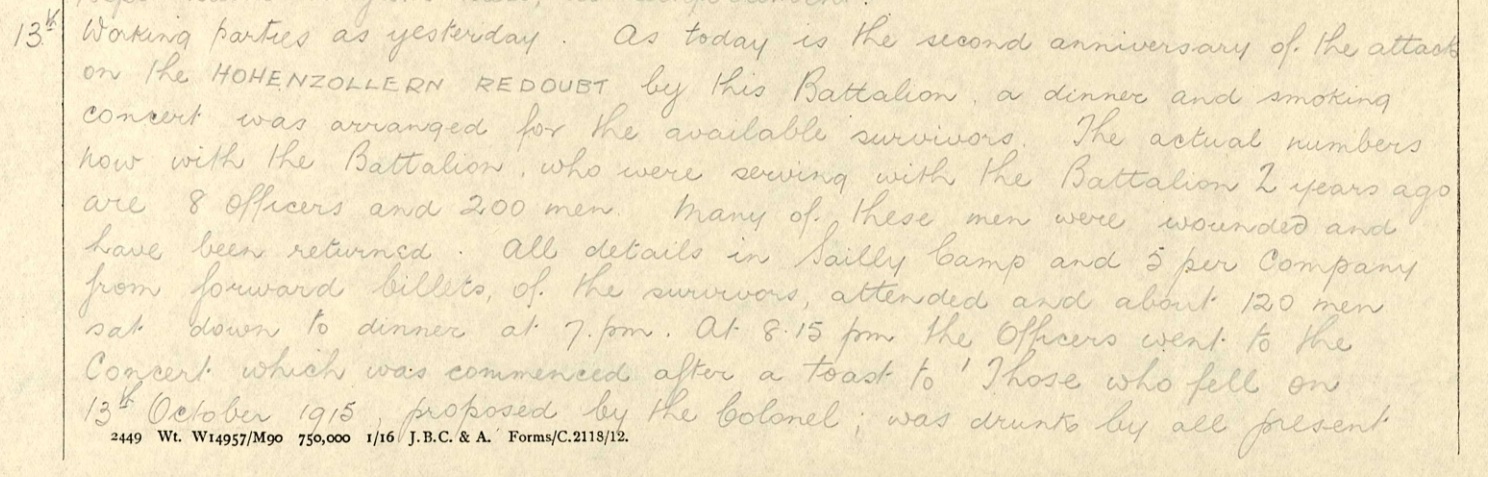 13th Working parties as yesterday. As today is the second anniversary of the attack
on the HOHENZOLLERN REDOUBT by this Battalion, a dinner and smoking
concert was arranged for the available survivors. The actual numbers
now with the Battalion, who were serving with the Battalion 2 years ago
are 8 officers and 200 men. Many of these men were wounded and
have been returned. All details in Sailly Camp and 5 per Company
from forward billets, of the survivors, attended and about 120 men
sat down to dinner at 7.pm. At 8.15 pm the Officers went to the
Concert which was commenced after a toast to 'Those who fell on
13th October 1915, proposed by the Colonel; was drunk by all present
2449 Wt. W14957/M90 750,000 1/16 J.B.C. & A. Forms/C.2118/12.